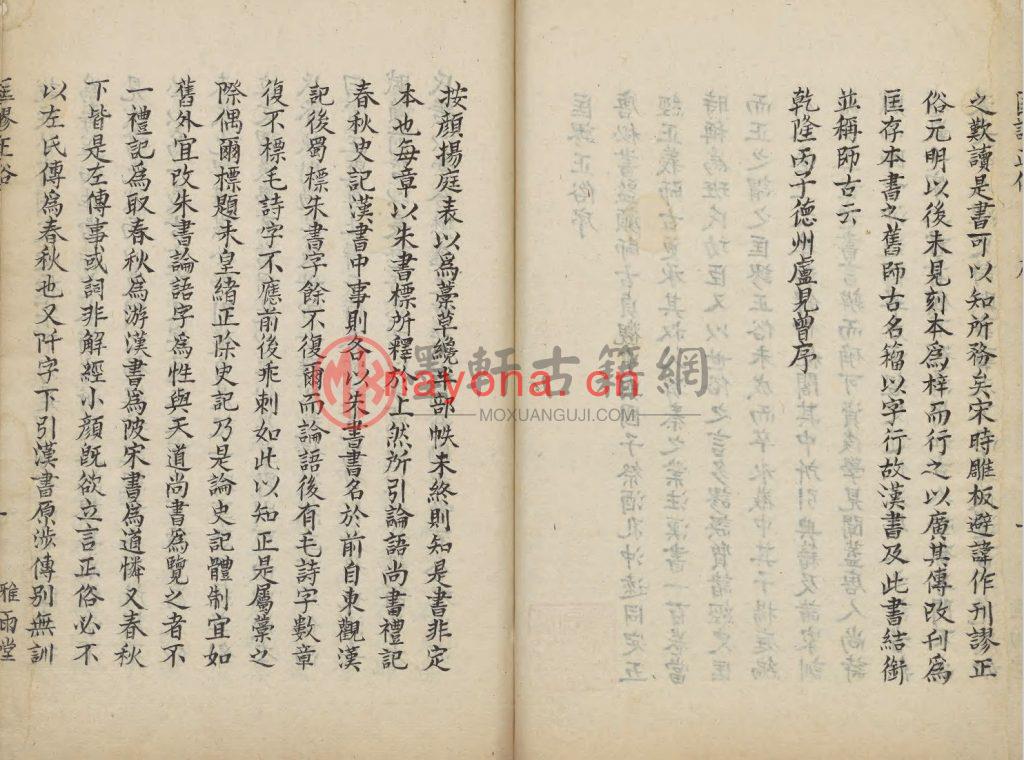 之歎讀是書可以知所務矣宋時雕板避諱作刊謬正
俗元明以後未見刻本為梓而行之以廣其傳改刊為
匡存本書之舊師古名籀以字行故漢書及此書結銜
並稱師古云
乾隆丙子德州盧見曾序
按顏揚庭表以為藁草纔半部帙未終則知是書非定
本也每章以朱書標所釋於上然所引論語尚書禮記
春秋史記漢書中事則各以朱書書名於前自東觀漢
記後蜀標朱書字餘不復爾而論語後有毛詩字數章
復不標毛詩字不應前後乖刺如此以知正是屬藁之
際偶爾標題未皇緒正除史記乃是論史記體制宜如
舊外宜改朱書論語字為性與天道尚書為覽之者不
一禮記為取春秋為游漢書為陂宋書為道憐又春秋
下皆是左傳事或詞非解經小顏既欲立言正俗必不
以左氏傳為春秋也又阡字下引漢書原涉傳別無訓
匡謬正俗
一
雅雨堂
墨軒古籍網
nayona.cn
MOXUANGUJI.COM